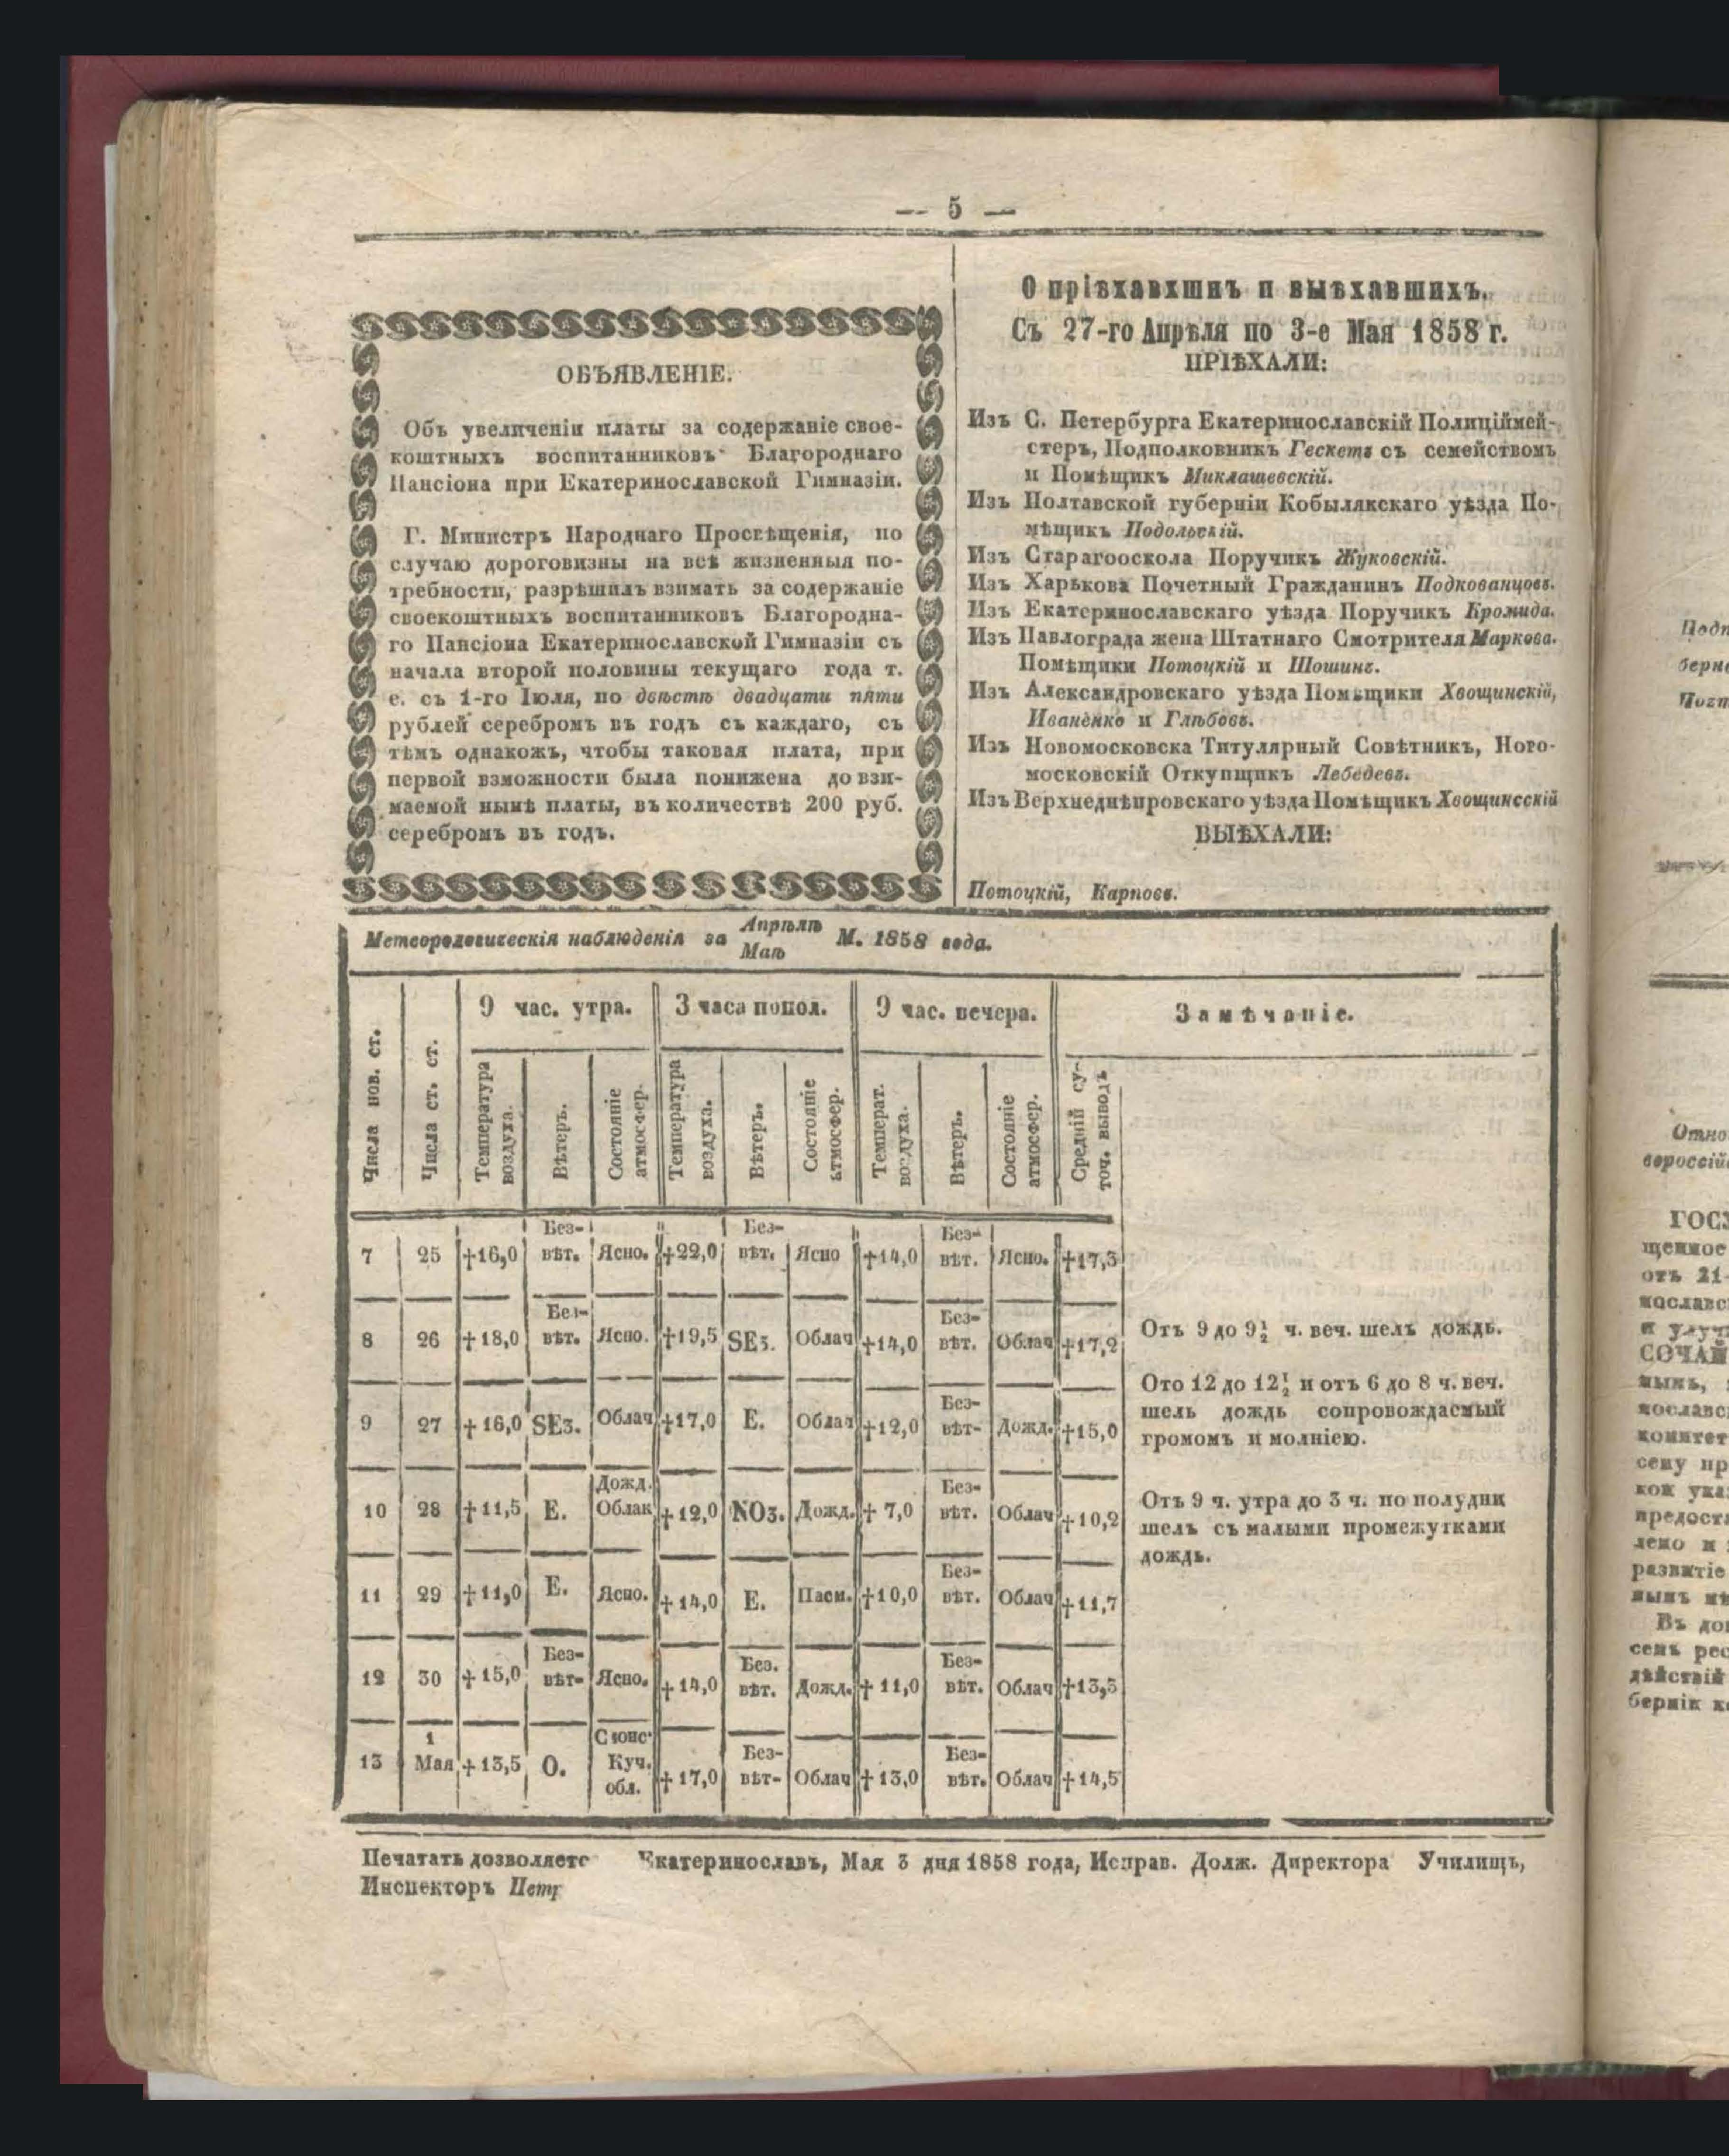 — 5 —
ОБЪЯВЛЕНІЕ.
Объ увеличеніи платы за содержаніе свое-
коштныхъ воспитанниковъ Благороднаго
Пансіона при Екатеринославской Гимназіи.
Г. Министръ Народнаго Просвѣщенія, по
случаю дороговизны на всѣ жизненныя по-
требности, разрѣшилъ взимать за содержаніе
своекоштныхъ воспитанниковъ Благородна-
го Пансіона Екатеринославской Гимназіи съ
начала второй половины текущаго года т.
е. съ 1-го Іюля, по двѣстѣ двадцати пяти
рублей серебромъ въ годъ съ каждаго, съ
тѣмъ однакожъ, чтобы таковая плата, при
первой взможности была понижена до взи-
маемой нынѣ платы, въ количествѣ 200 руб.
серебромъ въ годъ.
О пріѣхавхшиъ и выѣхавшихъ.
Съ 27-го Апрѣля по 3-е Мая 1858 г.
ПРІѢХАЛИ:
Изъ С. Петербурга Екатеринославскій Полиціймей-
стеръ, Подполковникъ Гескетъ съ семействомъ
и Помѣщикъ Миклашевскій.
Изъ Полтавской губерніи Кобылякскаго уѣзда По-
мѣщикъ Подольскій.
Изъ Старагооскола Поручикъ Жуковскій.
Изъ Харькова Почетный Гражданинъ Подкованцовъ.
Изъ Екатеринославскаго уѣзда Поручикъ Кромида.
Изъ Павлограда жена Штатнаго Смотрителя Маркова.
Помѣщики Потоцкій и Шошинъ.
Изъ Александровскаго уѣзда Помѣщики Хвощинскій,
Иваненко и Глѣбовъ.
Изъ Новомосковска Титулярный Совѣтникъ, Ново-
московскій Откупщикъ Лебедевъ.
Изъ Верхнеднѣпровскаго уѣзда Помѣщикъ Хвощинсскій
ВЫѢХАЛИ:
Потоцкій, Карповъ.
Метеорологическія наблюденія за Апрѣлѣ Маѣ М. 1858 года.
9 час. утра. 3 часа попол. 9 час. вечера. Замѣчаніе.
Числа нов. ст. Числа ст. ст. Температура воздуха. Вѣтеръ. Состояніе атмосфер. Температура воздуха. Вѣтеръ. Состояніе атмосфер. Температ. воздуха. Вѣтеръ. Состояніе атмосфер. Средній су- точ. выводъ
7 25 +16,0 Без- вѣт. Ясно. +22,0 Без- вѣт. Ясно +14,0 Без- вѣт. Ясно. +17,3
8 26 +18,0 Без- вѣт. Ясно. +19,5 SE3. Облач +14,0 Без- вѣт. Облач +17,2
Отъ 9 до 9½ ч. веч. шелъ дождь.
9 27 +16,0 SE3. Облач +17,0 E. Облач +12,0 Без- вѣт- Дожд. +15,0
Ото 12 до 12½ и отъ 6 до 8 ч. веч.
шелъ дождь сопровождаемый
громомъ и молніею.
10 28 +11,5 E. Дожд. Облак +12,0 NO3. Дожд. +7,0 Без- вѣт. Облач +10,2
Отъ 9 ч. утра до 3 ч. по полудни
шелъ съ малыми промежутками
дождь.
11 29 +11,0 E. Ясно. +14,0 E. Пасм. +10,0 Без- вѣт. Облач +11,7
12 30 +15,0 Без- вѣт- Ясно. +14,0 Без. вѣт. Дожд. +11,0 Без- вѣт. Облач +13,3
13 1 Мая +13,5 O. Куч. обл. +17,0 Без- вѣт- Облач +13,0 Без- вѣт. Облач +14,5
Печатать дозволяетс Екатеринославъ, Мая 3 дня 1858 года, Исправ. Долж. Директора Училищъ,
Инспекторъ Петр
Отно
ГОС
щенное
отъ 21-
и улуч
СОЧАЙ
комитет
сену пр
кож ука
предост
лено и
развитіе
Въ до
семъ рес
дѣйствій
берніи к